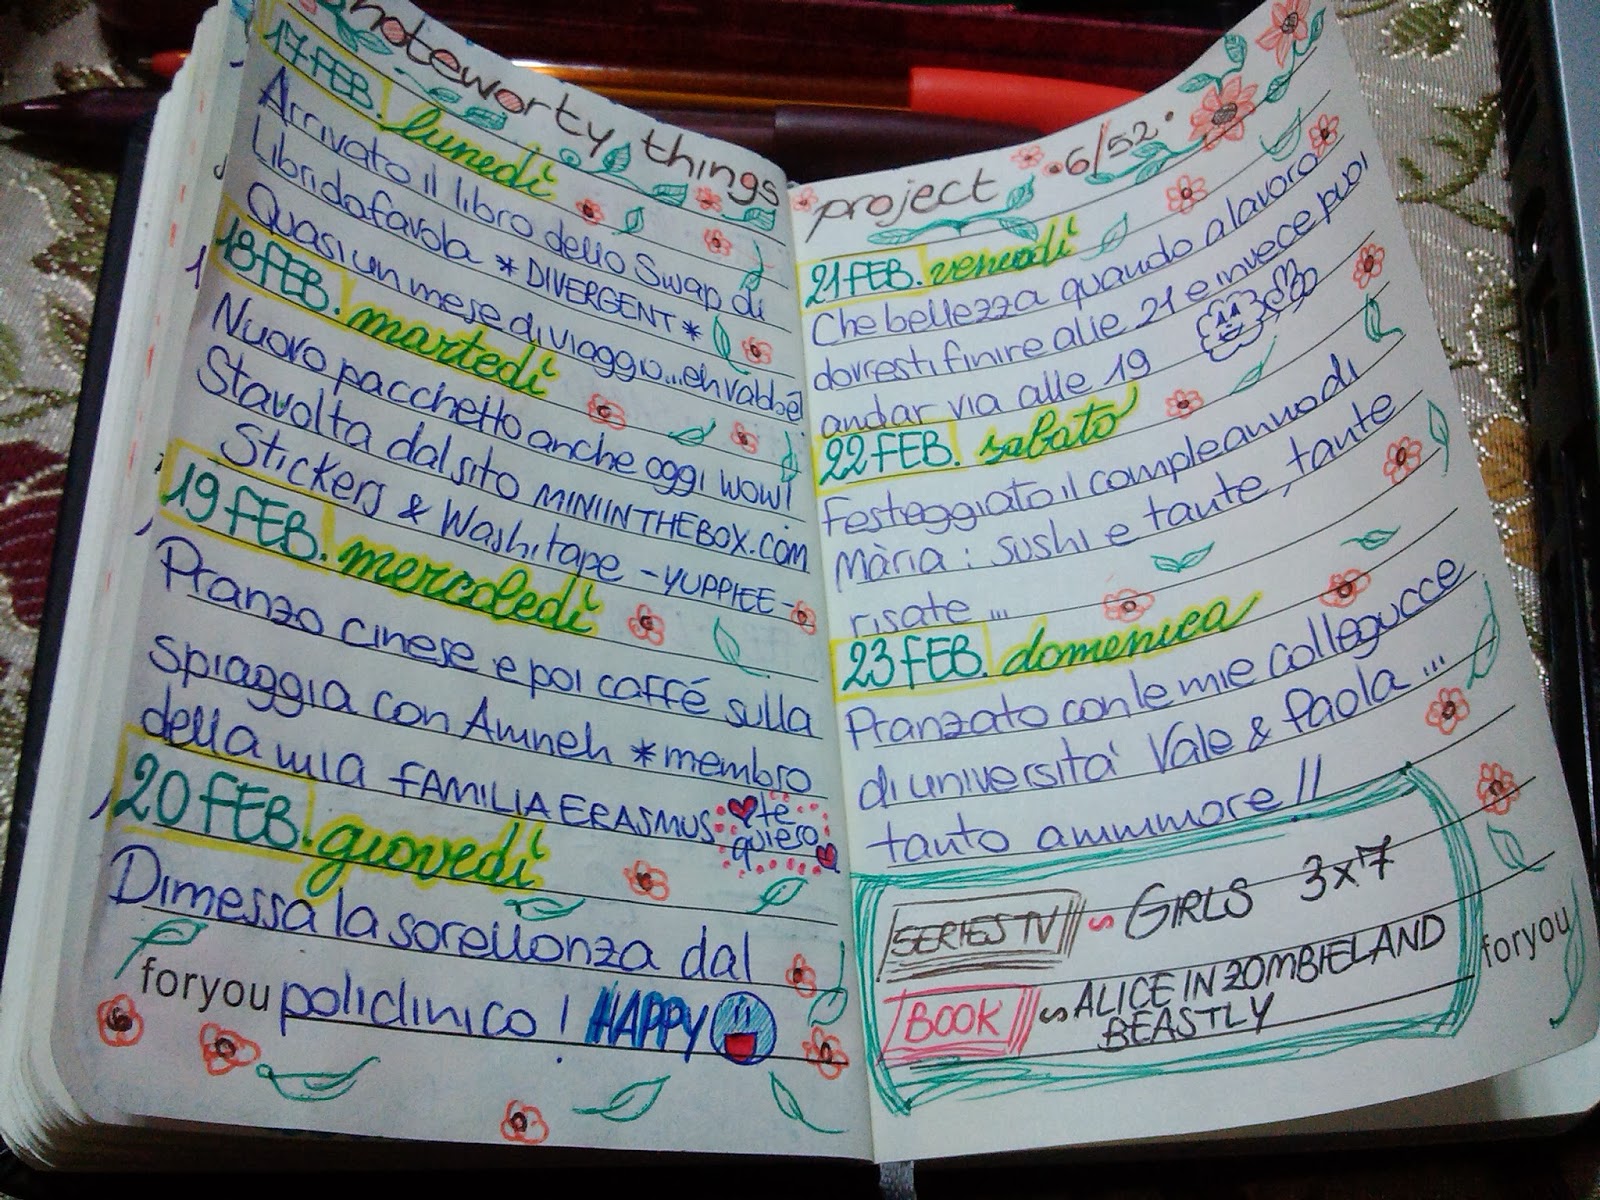 noteworty things
17 FEB. lunedì
Arrivato il libro dello Swap di
Libridafavola * DIVERGENT *
Quasi un mese di viaggio...eh vabbè!
18 FEB. martedì
Nuovo pacchetto anche oggi wow!
Stavolta dal sito MINIINTHEBOX.COM
Stickers & Washi tape - YUPPIEE -
19 FEB. mercoledì
Pranzo cinese e poi caffé sulla
spiaggia con Amneh * membro
della mia FAMILIA ERASMUS
te
quiero
20 FEB. giovedì
Dimessa la sorellonza dal
policlinico! HAPPY
foryou
project 6/52
21 FEB. venerdì
Che bellezza quando a lavoro
dovresti finire alle 21 e invece puoi
andar via alle 19
22 FEB. sabato
Festeggiato il compleanno di
Mària: sushi e tante, tante
risate...
23 FEB. domenica
Pranzato con le mie collegucce
di università Vale & Paola...
tanto ammmore!!
SERIES TV ~ GIRLS 3x7
BOOK ~ ALICE IN ZOMBIELAND
BEASTLY
foryou